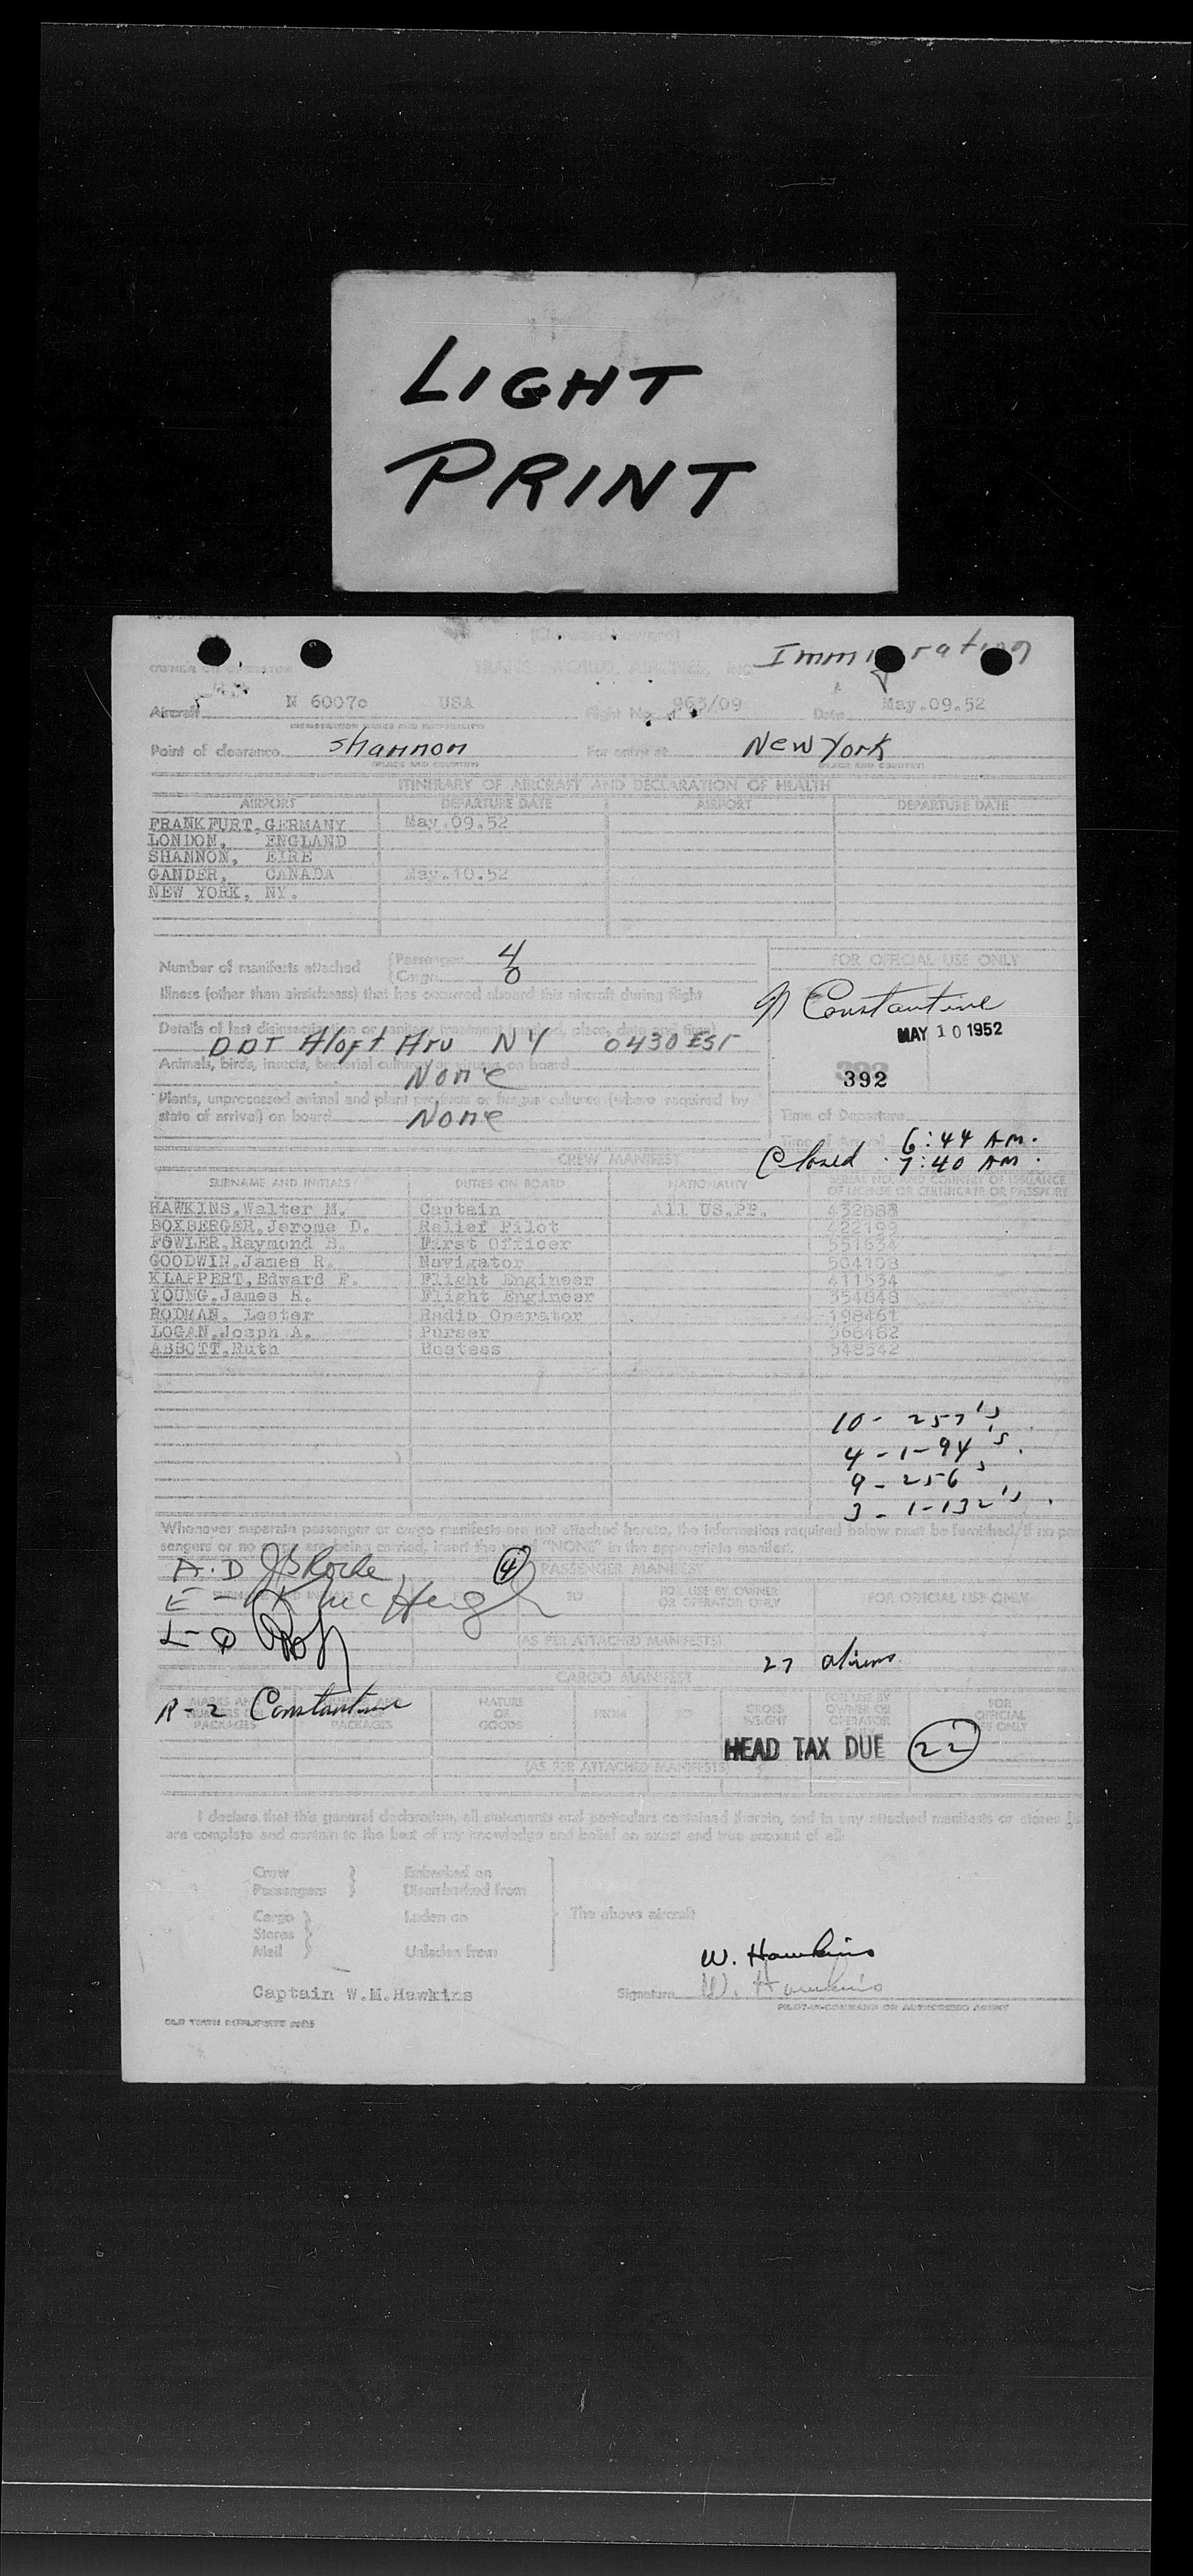 LIGHT
PRINT
(Outward/Inward)
Immigration
OWNER OR OPERATOR TRANS WORLD AIRLINES, INC
Aircraft N 6007c USA Flight No. 963/09 Date May.09.52
(REGISTRATION MARKS AND NATIONALITY)
Point of clearance Shannon For entry at New York
(PLACE AND COUNTRY) (PLACE AND COUNTRY)
ITINERARY OF AIRCRAFT AND DECLARATION OF HEALTH
AIRPORT DEPARTURE DATE AIRPORT DEPARTURE DATE
FRANKFURT,GERMANY May.09.52
LONDON, ENGLAND
SHANNON, EIRE
GANDER, CANADA May.10.52
NEW YORK, NY.
Number of manifests attached Passenger 4
Cargo 0
FOR OFFICIAL USE ONLY
Illness (other than airsickness) that has occurred aboard this aircraft during flight
Constantine
MAY 10 1952
Details of last disinsectization or sanitary treatment
DDT Aloft Arv NY 0430 EST
Animals, birds, insects, bacterial cultures or viruses on board
None
392
Plants, unprocessed animal and plant products or fungus cultures (where required by
state of arrival) on board None
Time of Departure
Time of Arrival 6:44 AM.
Closed 7:40 AM.
CREW MANIFEST
SURNAME AND INITIALS DUTIES ON BOARD NATIONALITY SERIAL NO. AND COUNTRY OF ISSUANCE
OF LICENSE OR CERTIFICATE OR PASSPORT
HAWKINS,Walter M. Captain All US.PP. 432888
BOXBERGER,Jerome D. Relief Pilot 422199
FOWLER,Raymond B. First Officer 551634
GOODWIN,James R. Navigator 504108
KLAPPERT,Edward F. Flight Engineer 411534
YOUNG,James R. Flight Engineer 354848
RODMAN, Lester Radio Operator 198461
LOGAN,Joeph A. Purser 568482
ABBOTT,Ruth Hostess 548542
10 - 257's
4 - 1-94's.
9 - 256's
3 - 1-132's.
Whenever separate passenger or cargo manifests are not attached hereto, the information required below must be furnished. If no pas
sengers or no cargo are being carried, insert the word "NONE" in the appropriate manifest.
A.D
4
PASSENGER MANIFEST
TO FOR USE BY OWNER
OR OPERATOR ONLY FOR OFFICIAL USE ONLY
(AS PER ATTACHED MANIFESTS)
27 aliens
CARGO MANIFEST
R-2 Constantine
PACKAGES PACKAGES NATURE
OF
GOODS FROM TO GROSS
WEIGHT FOR USE BY
OWNER OR
OPERATOR FOR
OFFICIAL
USE ONLY
HEAD TAX DUE 22
(AS PER ATTACHED MANIFESTS)
I declare that this general declaration, all statements and particulars contained therein, and in any attached manifests or stores
are complete and contain to the best of my knowledge and belief an exact and true account of all:
Crew Embarked on
Passengers Disembarked from
Cargo Laden on The above aircraft
Stores
Mail Unladen from
W. Hawkins
Captain W.M.Hawkins Signature W. Hawkins
PILOT-IN-COMMAND OR AUTHORIZED AGENT